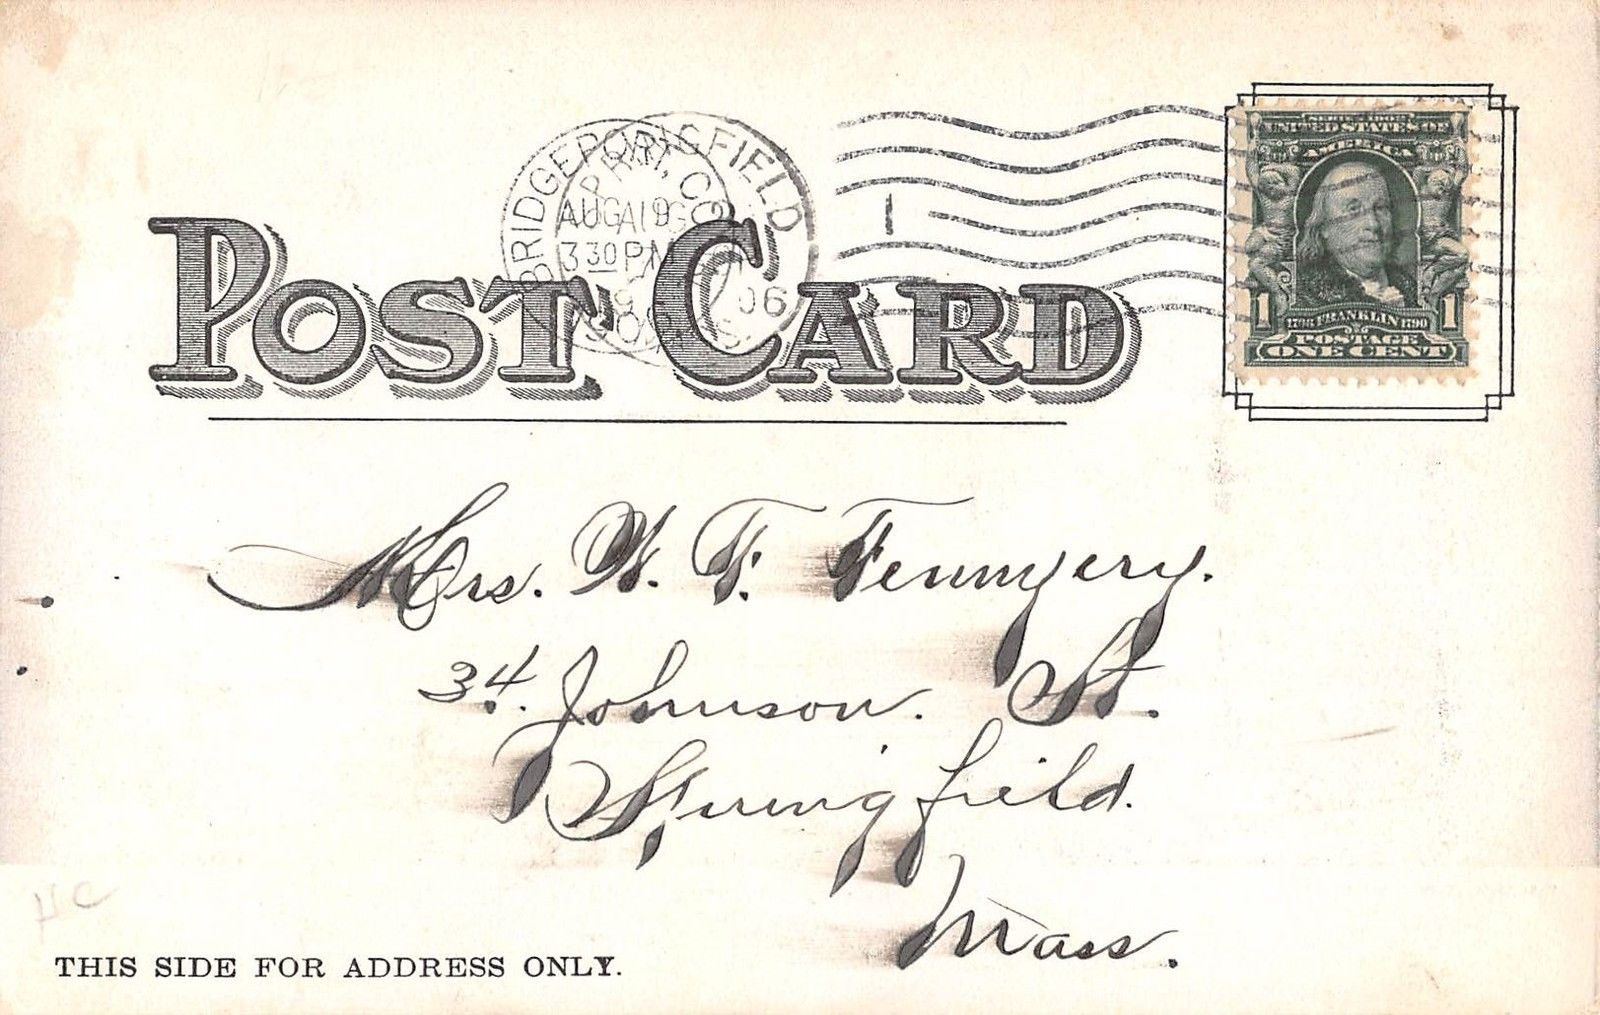 BRIDGEPORT, CONN.
SPRINGFIELD
AUG 19
3 30 PM
1906
06
1
SERIES 1902
UNITED STATES OF
AMERICA
1 1
1706 FRANKLIN 1790
POSTAGE
ONE CENT
POST CARD
Mrs. W. F. Fennyery.
34. Johnson. St.
Springfield.
Mass.
HC
THIS SIDE FOR ADDRESS ONLY.